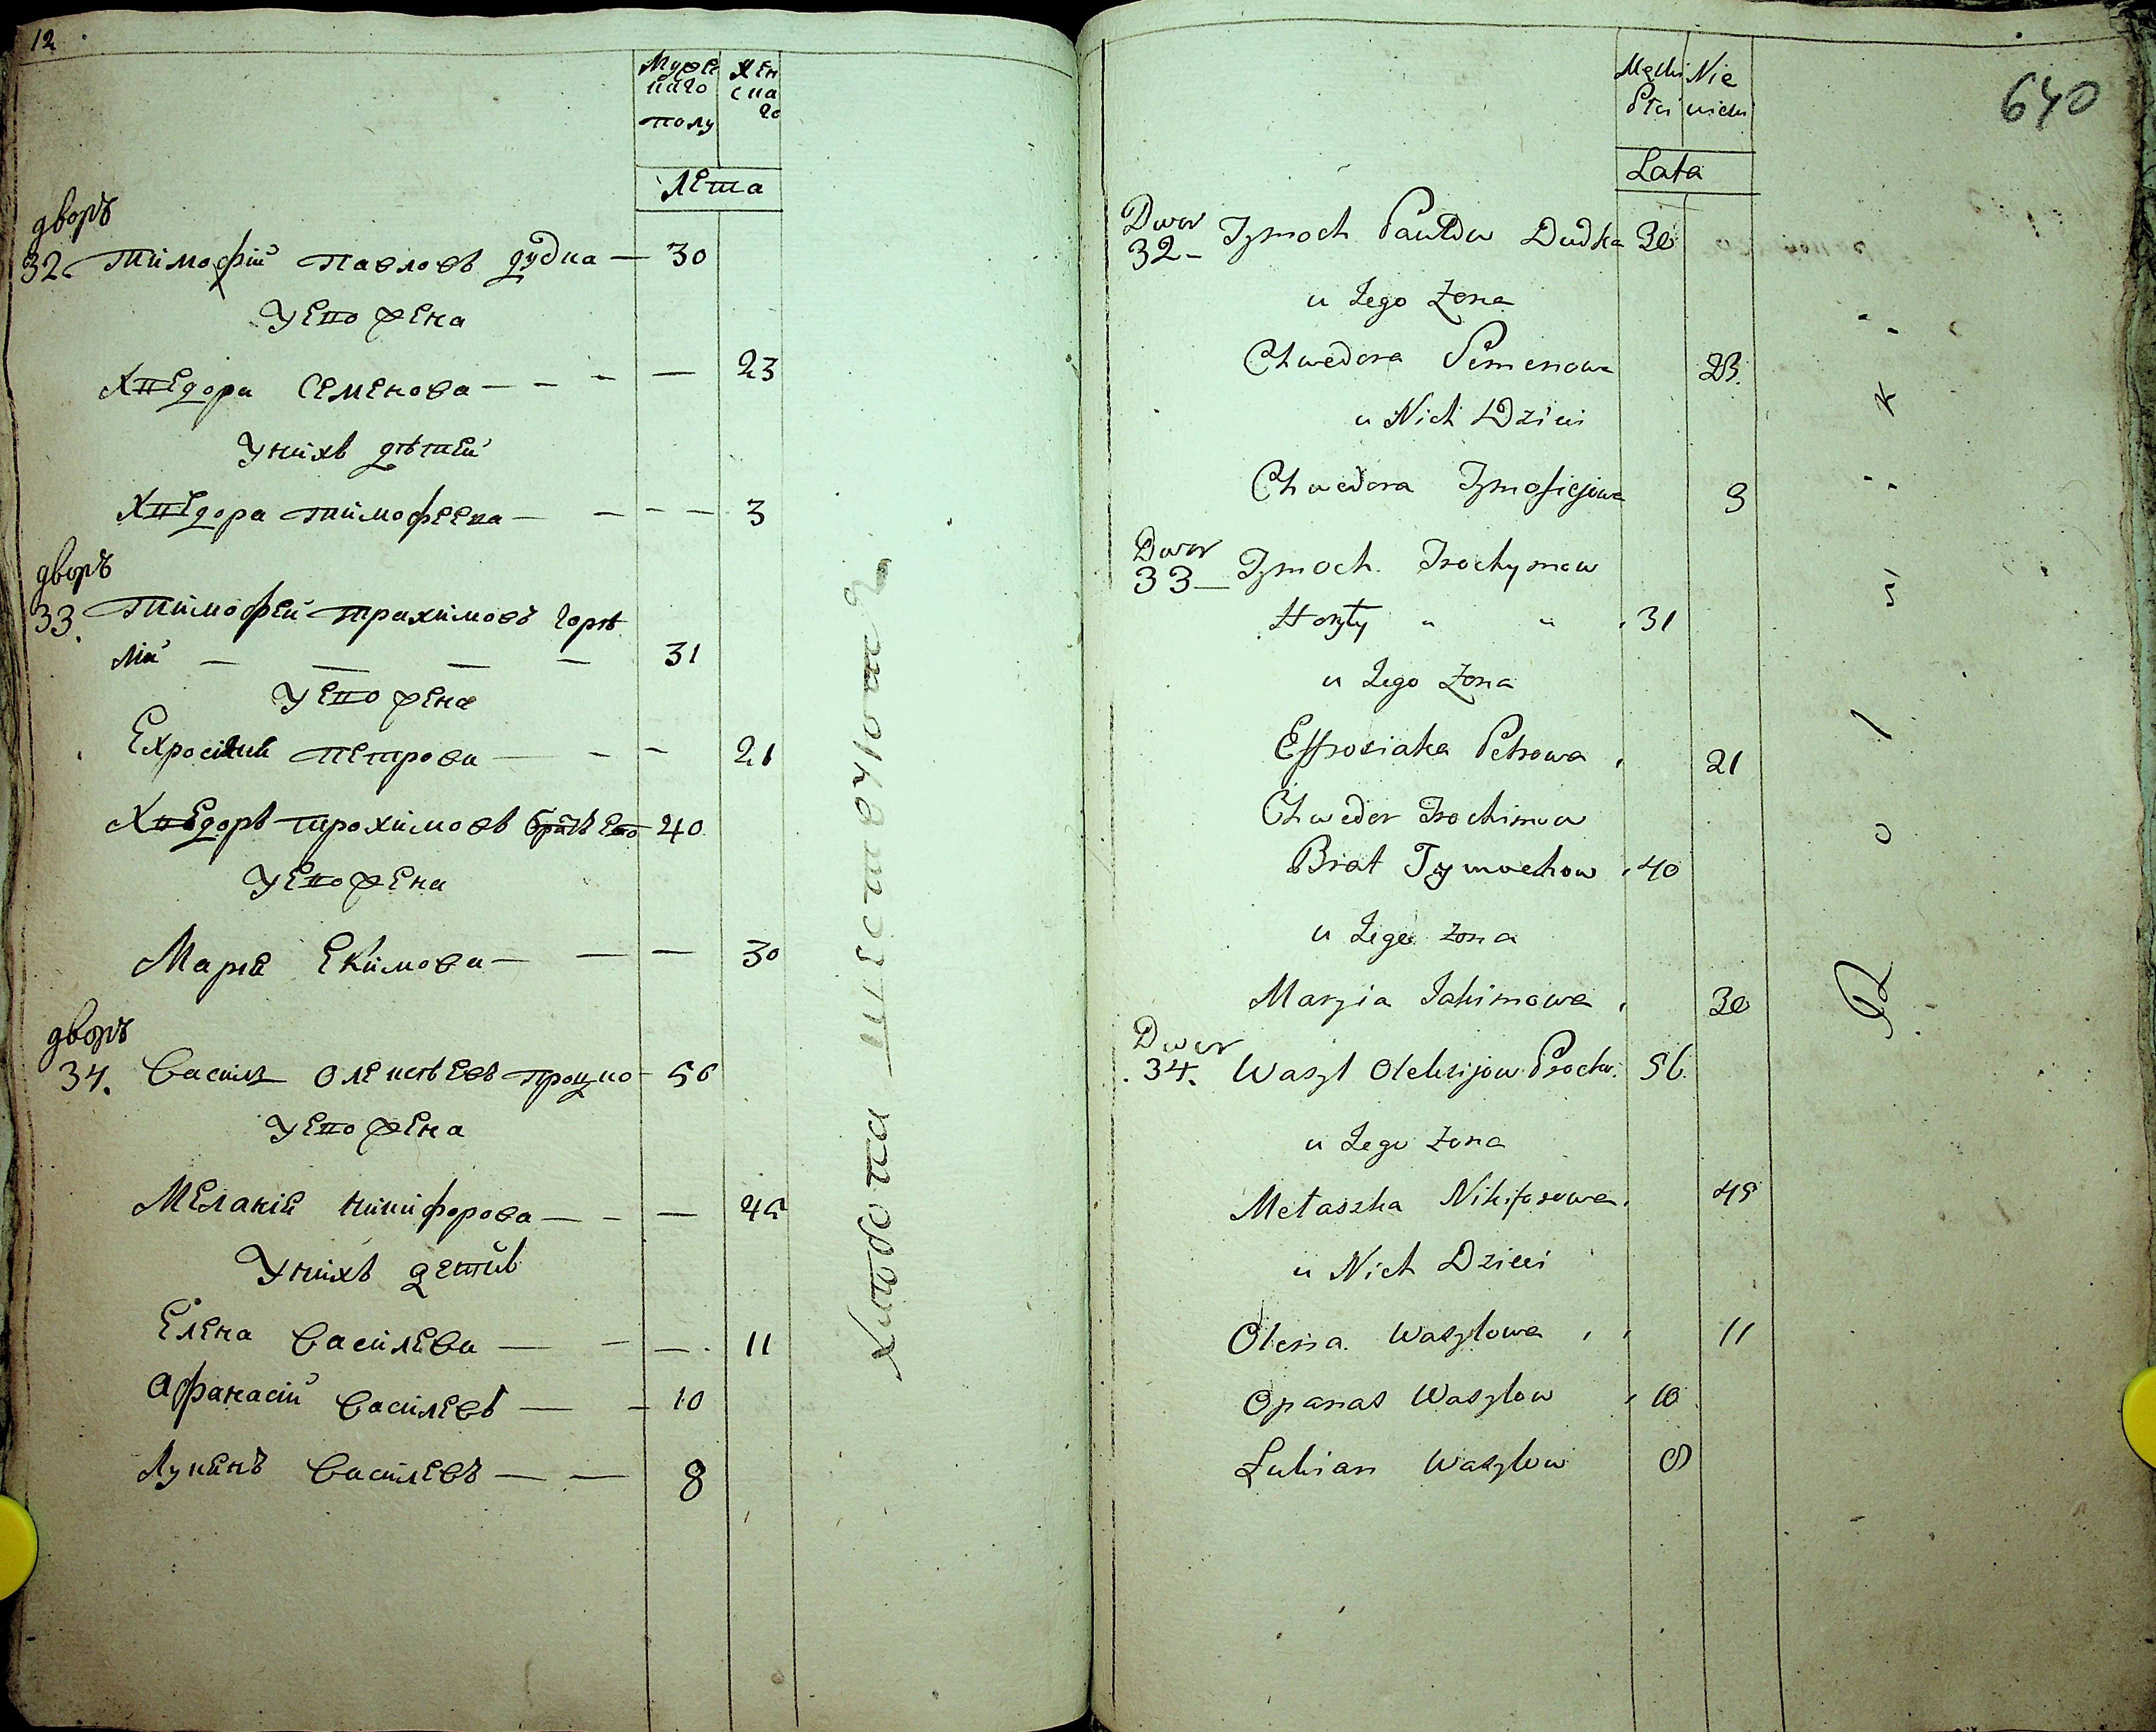 12
Мужескаго полу
Женскаго
Лета
дворъ
32 Тимофiй Павловъ Дудка — 30
У его жена
Хведора Семенова — — — — 23
У нихъ дѣтей
Хведора Тимофеева — — — — 3
дворъ
33. Тимофей Трахимовъ Горѣ
лiй — — — — 31
У его жена
Ехросинiй Петрова — — — 21
Хведоръ Трохимовъ братъ его 40
У его жена
Мария Екимова — — — 30
дворъ
34. Василь Олексѣевъ Процко 56
У его жена
Меланiй Никифорова — — — 45
У нихъ детей
Елена Василева — — — 11
Афанасiй Василевъ — — 10
Лукянъ Василевъ — — 8
640
Męski Nie
Płci wieski
Lata
Dwor
32 - Tymoch Pawłow Dudka 30
u Jego Żona
Chwedora Semenowa 23.
u Nich Dzieci
Chwedora Tymofiejowa 3
Dwor
33 — Tymoch Trochymow
Horyły " " 31
u Jego Żona
Effrosiaka Petrowa 21
Chwedor Trochimow
Brat Tymochow 40
u Jego Żona
Maryia Jakimowa 30
Dwor
34. Wasyl Oleksijow Prock. 56
u Jego Żona
Melaszka Nikiforowa 45
u Nich Dzieci
Olena Wasylowa 11
Opanas Wasylow 10
Lukian Wasylow 8